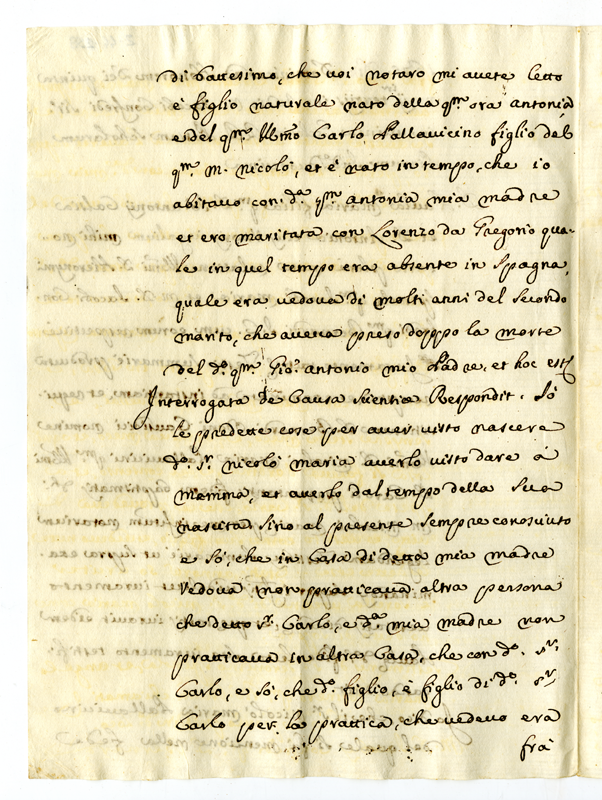 di battesimo, che voi notaro mi avete letto
è figlio naturale nato della qm. ora antonia
e del qm. Illmo Carlo Pallavicino figlio del
qm. m. nicolò, et è nato in tempo, che io
abitavo con da. qm. antonia mia madre
et ero maritata con Lorenzo da Gregorio qua-
le in quel tempo era absente in Spagna,
quale era vedova di molti anni del secondo
marito, che aveva preso doppo la morte
del do. qm. Gio: antonio mio Padre, et hoc est
Interrogata de Causa scientiæ Respondit. Sò
le predette cose per aver visto nascere
do. sr. nicolò maria averlo visto dare à
mamma, et averlo dal tempo della sua
nascita sino al presente sempre conosciuto
e sò, che in Casa di detta mia madre
vedova non pratticava altra persona
che detto sr. Carlo, e da. mia madre non
pratticava in altra Casa, che con do. sr.
Carlo, e sò, che do. figlio, è figlio di do. sr.
Carlo per la prattica, che vedevo era
frà